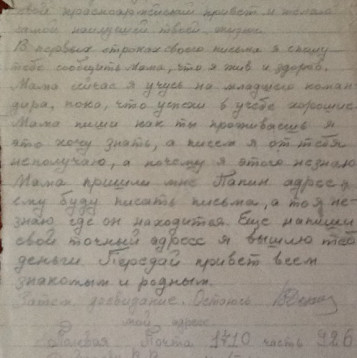 свой красноармейский привет и желаю
самой наилучшей твоей жизни.
В первых строках своего письма я спешу
тебе сообщить мама, что я жив и здоров.
Мама сейчас я учусь на младшего коман-
дира, пока, что успехи в учебе хорошие.
Мама пиши как ты проживаешь я
это хочу знать, а писем я от тебя
неполучаю, а почему я этого незнаю
Мама пришли мне Папин адрес я
ему буду писать письма, а то я не-
знаю где он находится. Еще напиши
свой точный адрес я вышлю тебе
деньги. Передай привет всем
знакомым и родным.
Затем досвидание. Остаюсь
мой адрес
Полевая Почта 1710 часть 926